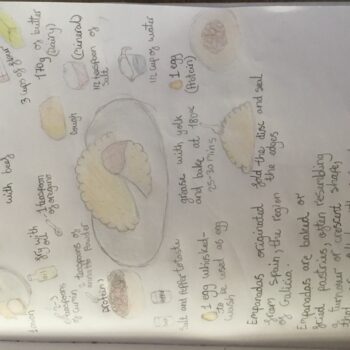 3 cups of flour
170g of butter
(Dairy)
(mineral)
1/2 teaspoon of
salt
1/2 cup of water
1 egg
(Protein)
Dough
with beef
fry with
oil
1 teaspoon
of oregano
2 teaspoons
of cumin
teaspoons of
powder
protein
Salt and pepper to taste
grease with yolk
and bake at 180°C
25-30 mins
fold the disc and seal
the edges
1 egg whisked-
to be used as egg
wash
Empanadas originated
from Spain, the region
of Galicia.
Empanadas are baked or
fried pastries, often resembling
a turnover or crescent shape,